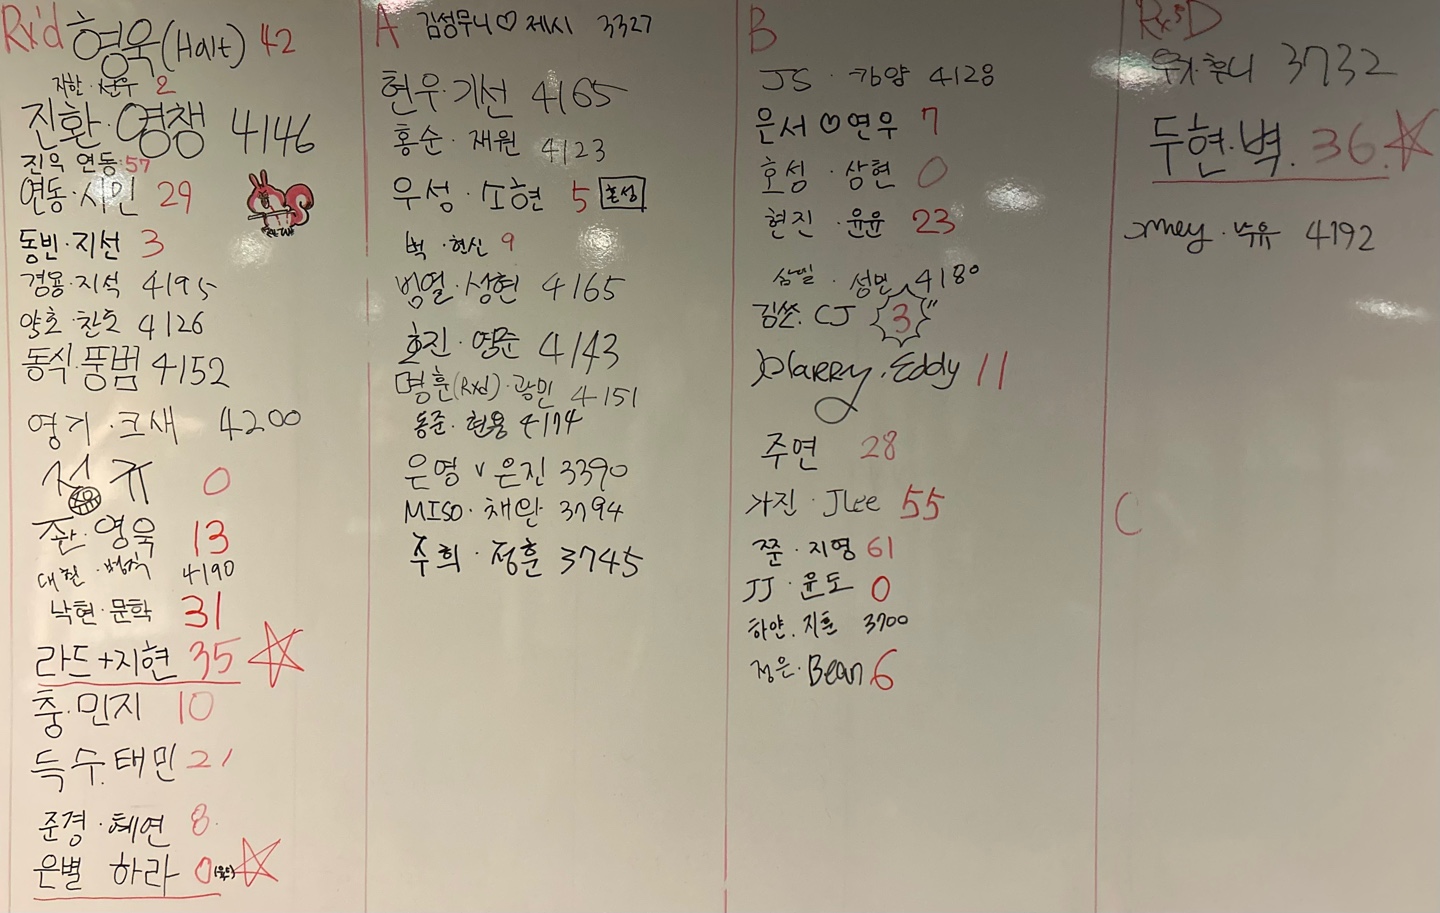 Rx'd 형욱(Halt) 42
지한·선우 2
진환·영챙 4146
진욱 연동 57
연동·시민 29
동빈·지선 3
경용·지석 4195
약호·찬호 4126
동식·풍범 4152
영기·크새 4200
선규 0
존·영욱 13
대현·범석 4190
낙현·문학 31
라드+지현 35
충·민지 10
득수.태민 21
준경·혜연 8
은별 하라 0
A 김성무니♡제시 3327
현우·기선 4165
홍순·재원 4123
우성·소현 5 호성
벽·현신 9
범열·상현 4165
호진·영준 4143
명훈(Rxd)·광민 4151
동준·현용 4174
은영 v 은진 3390
MISO·채완 3794
주희·정훈 3745
B
JS·캬양 4128
은서♡연우 7
호성·상현 0
현진·윤윤 23
삼열·성민 4180
김쏜.CJ 3
Harry.Eddy 11
주연 28
가진·JLee 55
쭌·지영 61
JJ·윤도 0
하얀.지훈 3700
정은·Bean 6
Rx'sD
후니 3732
두현·벽. 36
mey·수유 4192
C